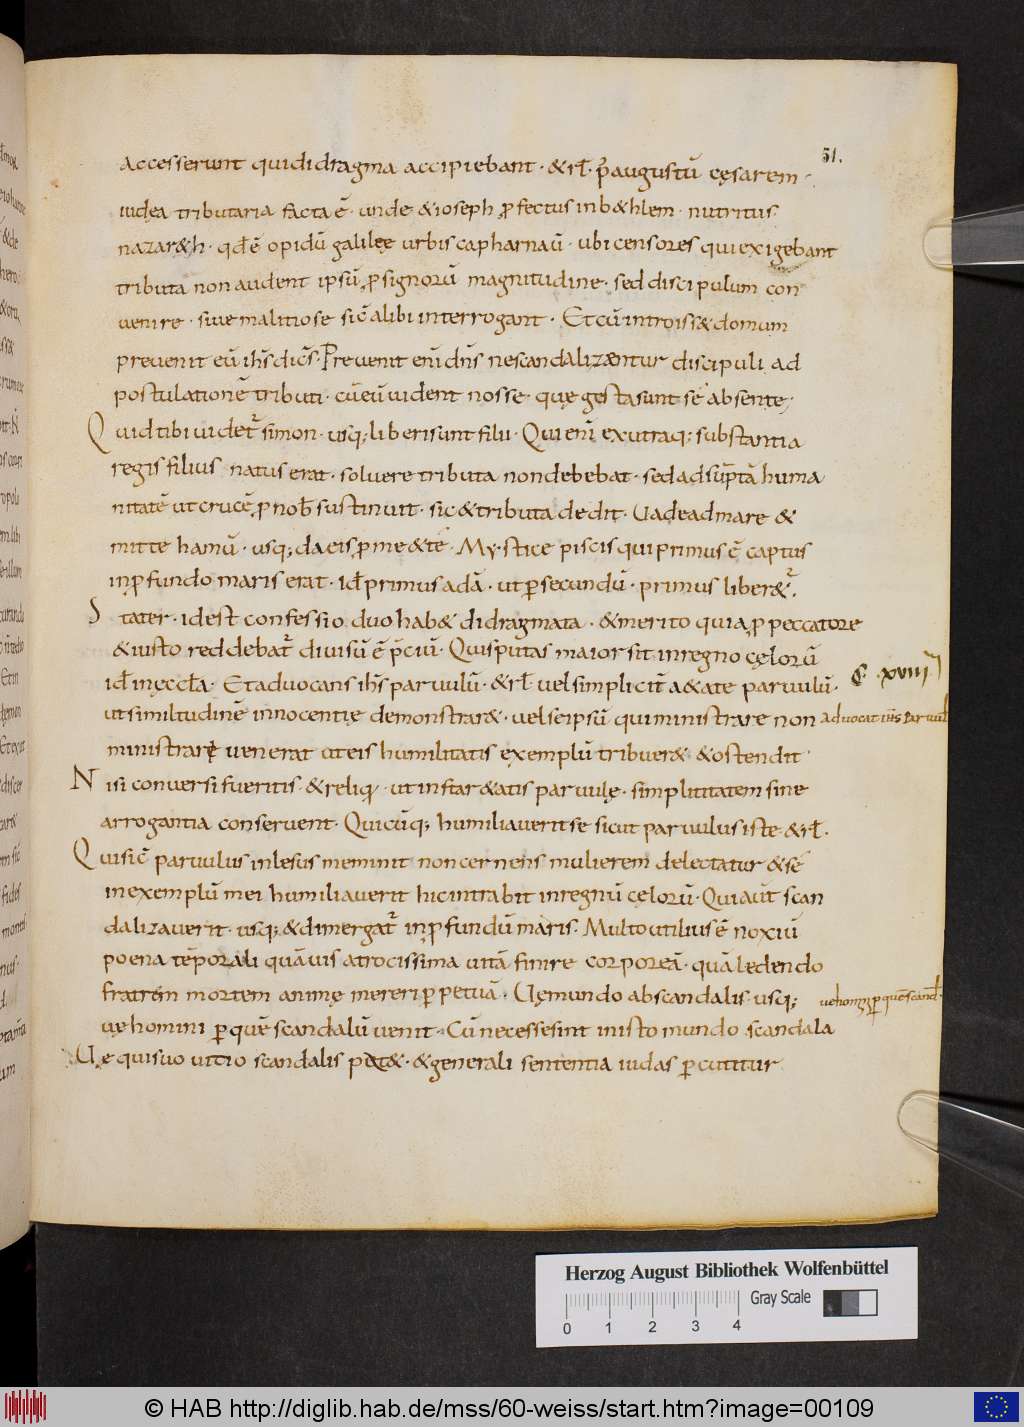 51.
Accesserunt quididragma accipiebant · & rł. p̄ augustū cęsarem ·
iudea tributaria facta ē · unde & ioseph ꝓfectus in b&hlem · nutritus
nazar&h · qđ ē opidū galilęę urbis capharnaū · ubi censores qui exigebant
tributa non audent ipsū ꝓ signorū magnitudine · sed discipulum con
uenire · siue malitiose sic̄ alibi interrogant · Et cū introiss& domum
preuenit eū ihs̄ dic̄s · Preuenit enī dn̄s ne scandalizæntur discipuli ad
postulationē tributi · cū eū uident nosse · quę gesta sunt sé absente ·
Quid tibi uidet̄ simon · usq; liberi sunt filii · Qui enī ex utraq; substantia
regis filius natus erat · soluere tributa non debebat · sed adsūpta huma
nitatē ut crucē ꝓ nob̄ sustinuit · sic & tributa dedit · Uade ad mare &
mitte hamū · usq; da eis ꝓ me & te · Mystice piscis qui primus ē captus
in ꝓfundo maris erat · id̄ primus adā · ut ꝑ secundū · primus liber&̄ ·
Stater · id est confessio duo hab& didragmata · & merito quia ꝓ peccatore
& iusto reddebat̄ diuisū ē p̄ciū · Quis putas maior sit in regno cęlorū
id̄ in ęccła · Et aduocans ihs̄ paruulū · & rł uel simplicit̄ a &ate paruulū ·
¢ · xviii
ut similtudinē innocentię demonstrar& · uel seipsū qui ministrare non
aduocat ihs̄ paruul
ministrare uenerat ut eis humilitatis exemplū tribuer& · & ostendit ·
Nisi conuersi fueritis · & reliq̄ · ut instar &atis paruulę · simplititatem sine
arrogantia conseruent · Quicūq; humiliauerit se sicut paruulus iste & rł ·
Qui sic̄ paruulus inlesus meminit non cernens mulierem delectatur & sé
in exemplū mei humiliauerit hic intrabit in regnū cęlorū · Qui aūt scan
dalizauerit · usq; & dimergat̄ in ꝓfundū maris · Multo utilius ē noxiū
poena tēporali quāuis atrocissima uitā finire corporeā · quā ledendo
fratrem mortem animę mereri ꝑpetuā · Uę mundo ab scandalis · usq;
uę homini ꝑ quē scand̄ ·
uę homini ꝑ quē scandalū uenit · Cū necesse sint in isto mundo scandala
Uę qui suo uitio scandalis pat& · & generali sententia iudas ꝑcutitur
Herzog August Bibliothek Wolfenbüttel
Gray Scale
0 1 2 3 4
© HAB http://diglib.hab.de/mss/60-weiss/start.htm?image=00109